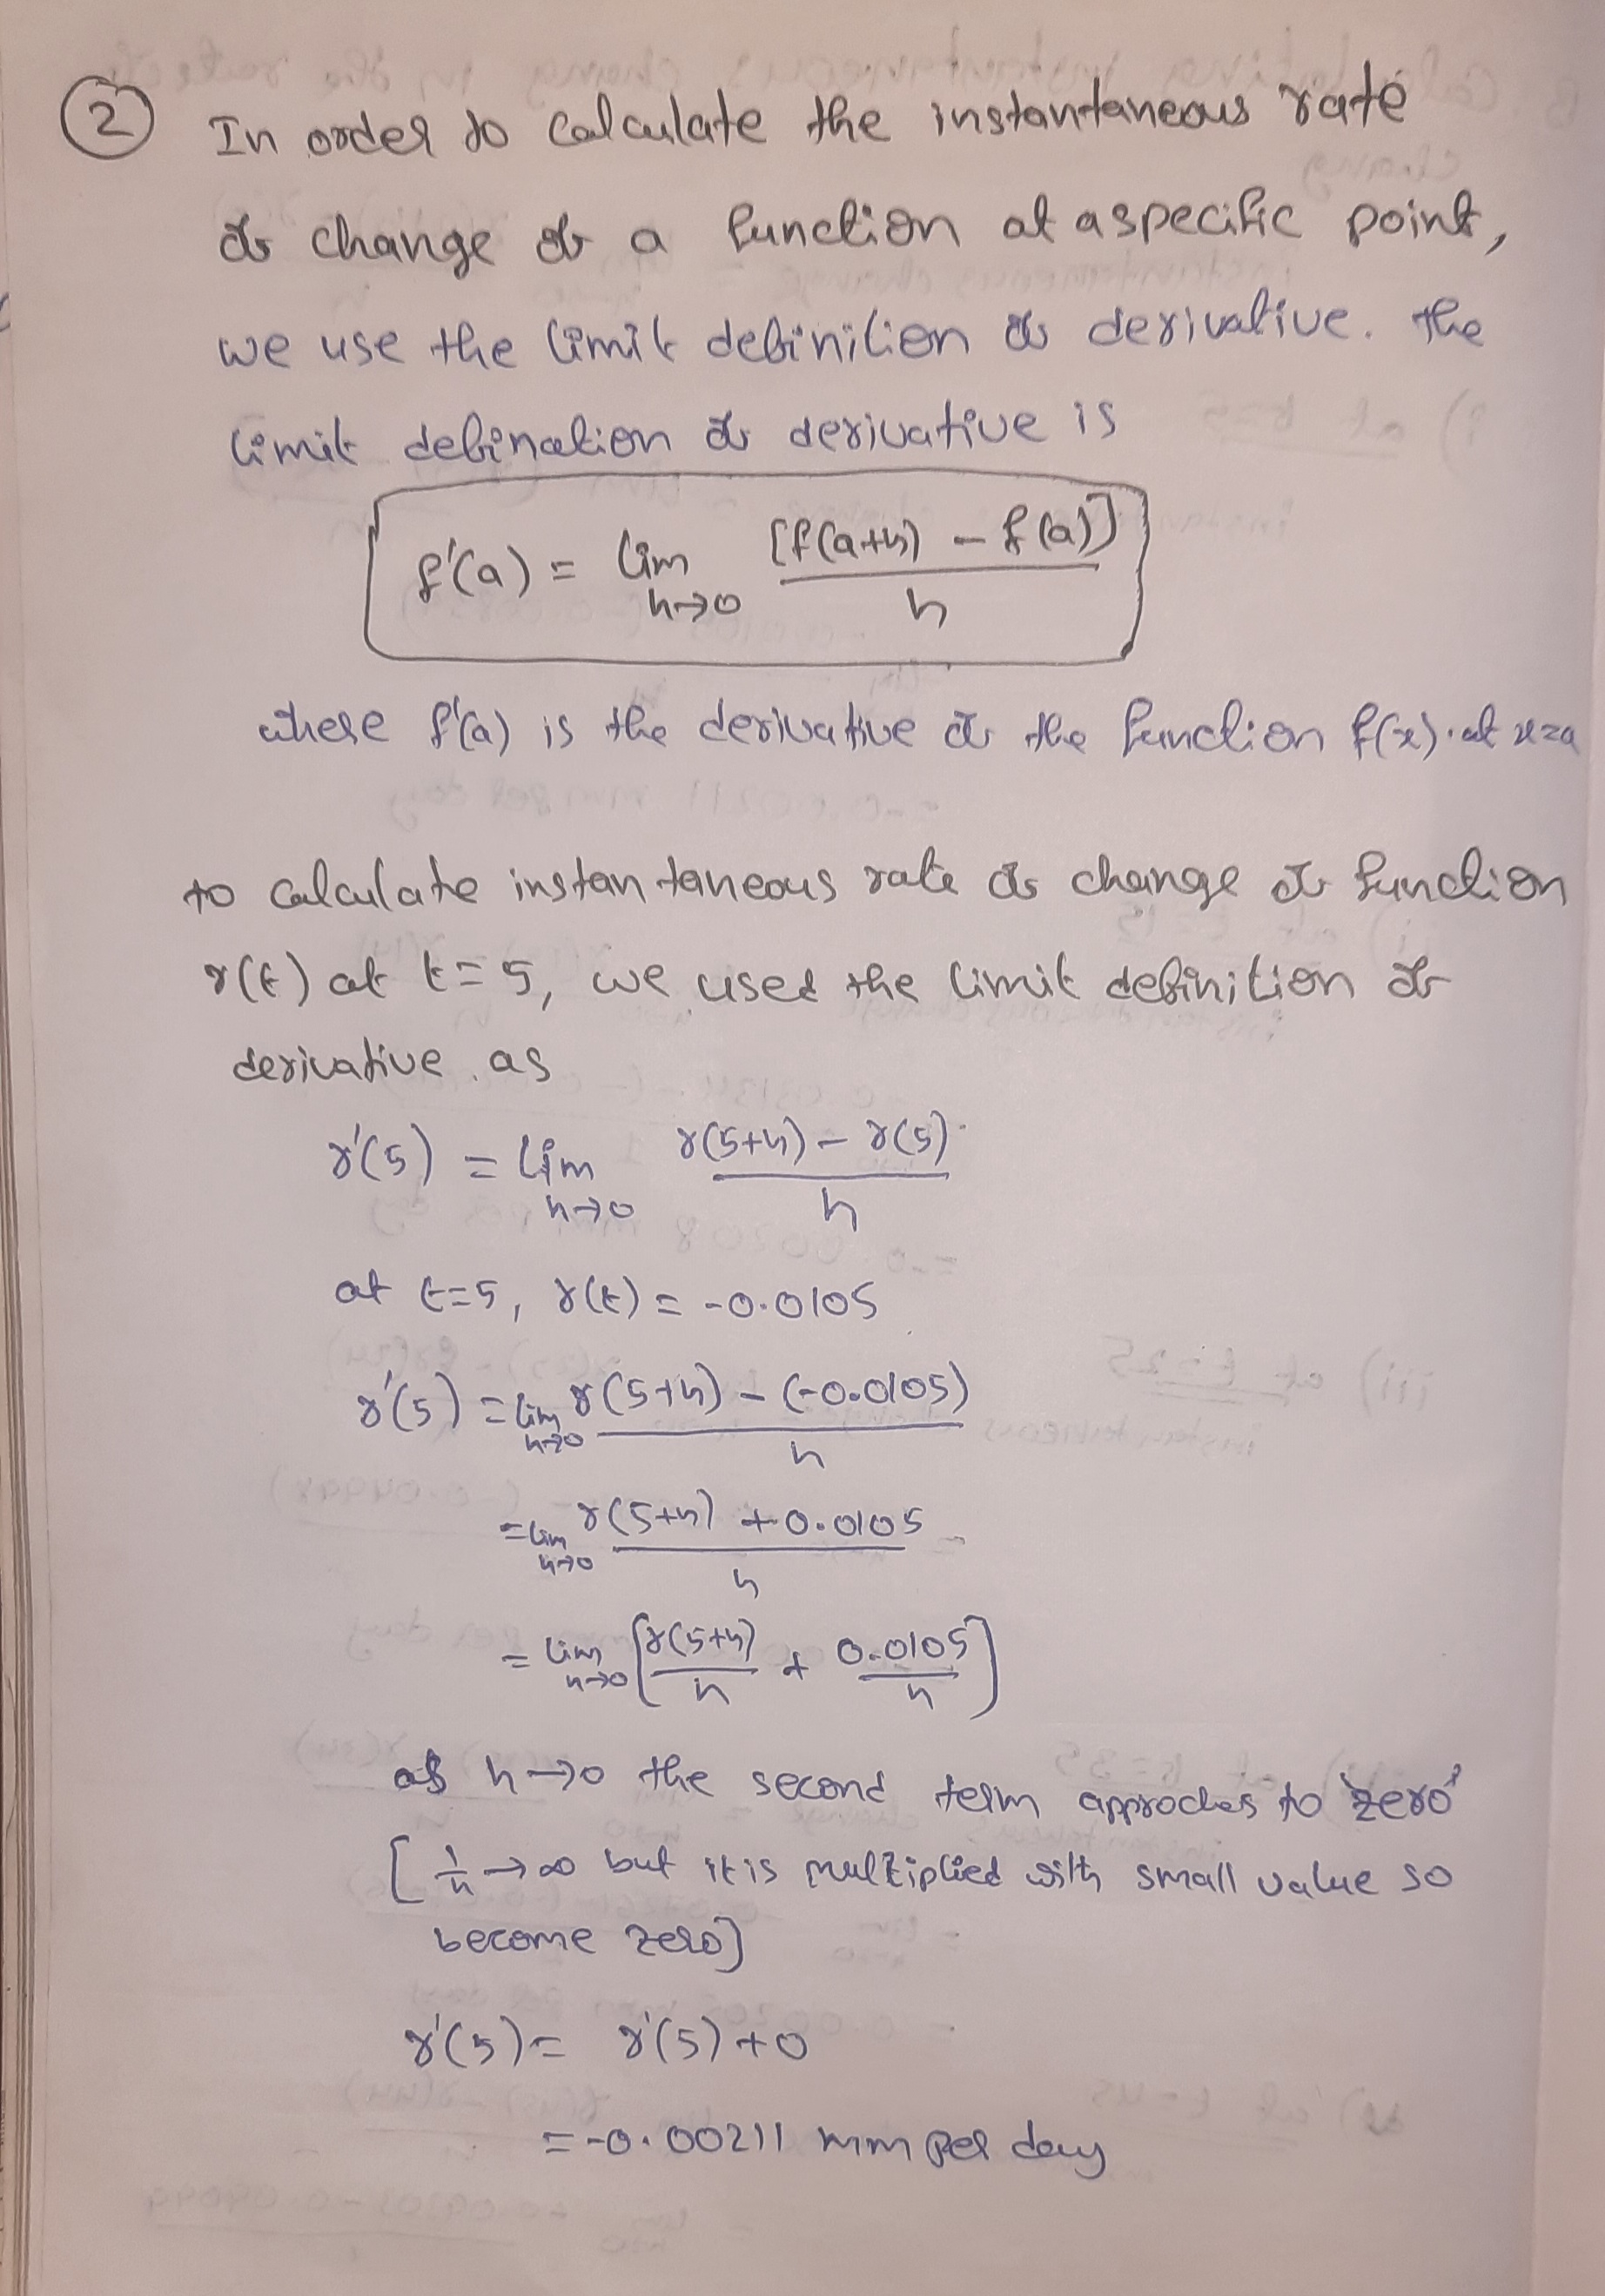 2 In order to calculate the instantaneous rate
of change of a function at a specific point,
we use the limit definition of derivative. The
limit defination of derivative is
f'(a) = lim h→0 [f(a+h) - f(a)] / h
where f'(a) is the derivative of the function f(x) at x=a
to calculate instantaneous rate of change of function
r(t) at t=5, we used the limit definition of
derivative as
r'(5) = lim h→0 r(5+h) - r(5) / h
at t=5, r(t) = -0.0105
r'(5) = lim h→0 r(5+h) - (-0.0105) / h
= lim h→0 r(5+h) + 0.0105 / h
= lim h→0 [r(5+h)/h + 0.0105/h]
as h→0 the second term approches to zero
[1/h→∞ but it is multiplied with small value so
become zero]
r'(5) = r'(5)+0
= -0.00211 mm per day